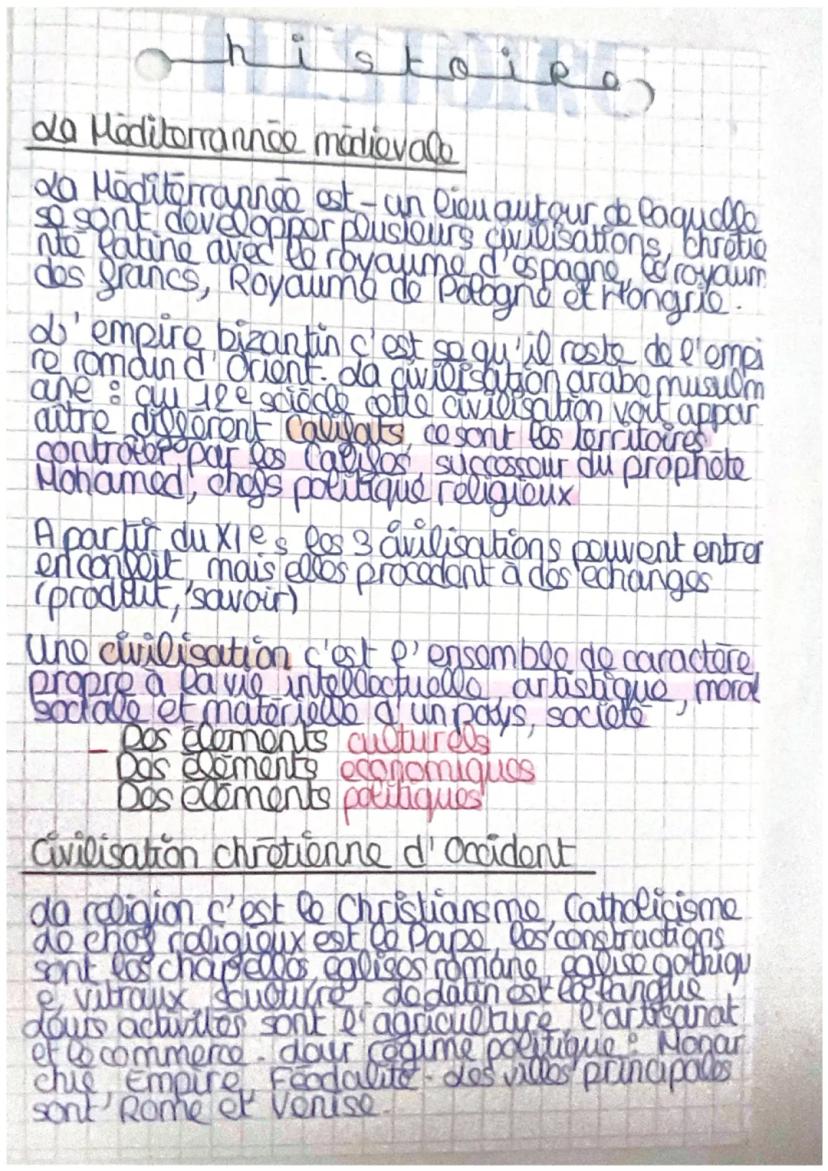 histoire
La Méditerrannée médievale
La Méditerrannée est - un lieu autour de laquelle
se sont développer plusieurs civilisations, chrétie
nté latine avec le royaume d'espagne, le royaum
des francs, Royaume de Pologne et Hongrie.
L'empire bizantin c'est se qu'il reste de l'empi
re romain d'Orient. La civilisation arabo musulm
ane : au 12e siècle cette civilisation voit appar
aitre différent califats, ce sont les territoires
contrôler par les califes successeur du prophète
Mohamed, chefs politique religieux
A partir du XIe s les 3 civilisations peuvent entrer
en conflit, mais elles procedent à des echanges
(produit, savoir)
Une civilisation c'est l'ensemble de caractère
propre à la vie intellectuelle artistique, moral
sociale et matérielle d'un pays, société
- Des éléments culturels
Des éléments economiques
Des éléments politiques
Civilisation chrétienne d'Occident
La religion c'est le Christiansme, Catholicisme
Le chef religieux est le Pape, les constructions
sont les chapelles eglises romane, eglise gothiqu
e vitraux. Le Latin est la langue
Leurs activités sont l'agriculture l'artisanat
et le commerce. Leur régime politique : Monar
chie Empire, Féodalité. Les villes principales
sont Rome et Venise.